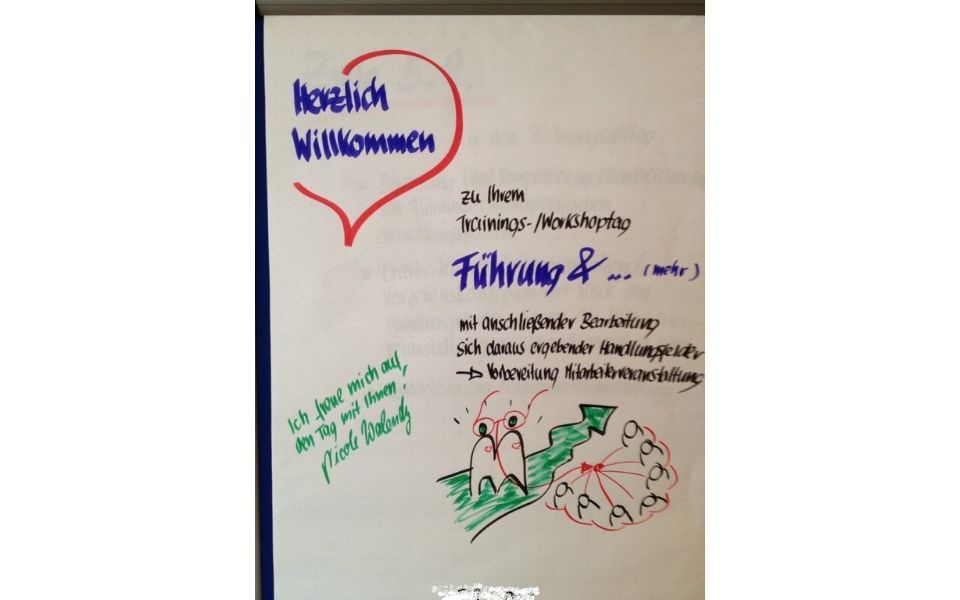 Herzlich
Willkommen
zu Ihrem
Trainings-/Workshoptag
Führung & ... (mehr)
mit anschließender Bearbeitung
sich daraus ergebender Handlungsfelder
→ Vorbereitung Mitarbeiterveranstaltung
Ich freue mich auf
den Tag mit Ihnen!
Nicole